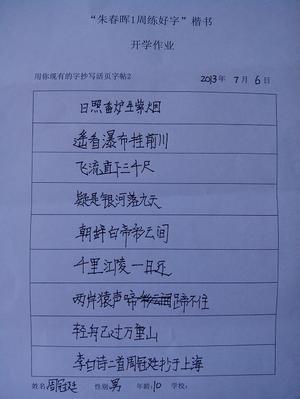 “朱春晖1周练好字”楷书
开学作业
用你现有的字抄写活页字帖2 2013年 7月 6日
日照香炉生紫烟
遥看瀑布挂前川
飞流直下三千尺
疑是银河落九天
朝辞白帝彩云间
千里江陵一日还
两岸猿声蹄不住
轻舟已过万里山
李白诗二首周冠廷抄于上海
姓名:周冠廷 性别:男 年龄:10 学校: